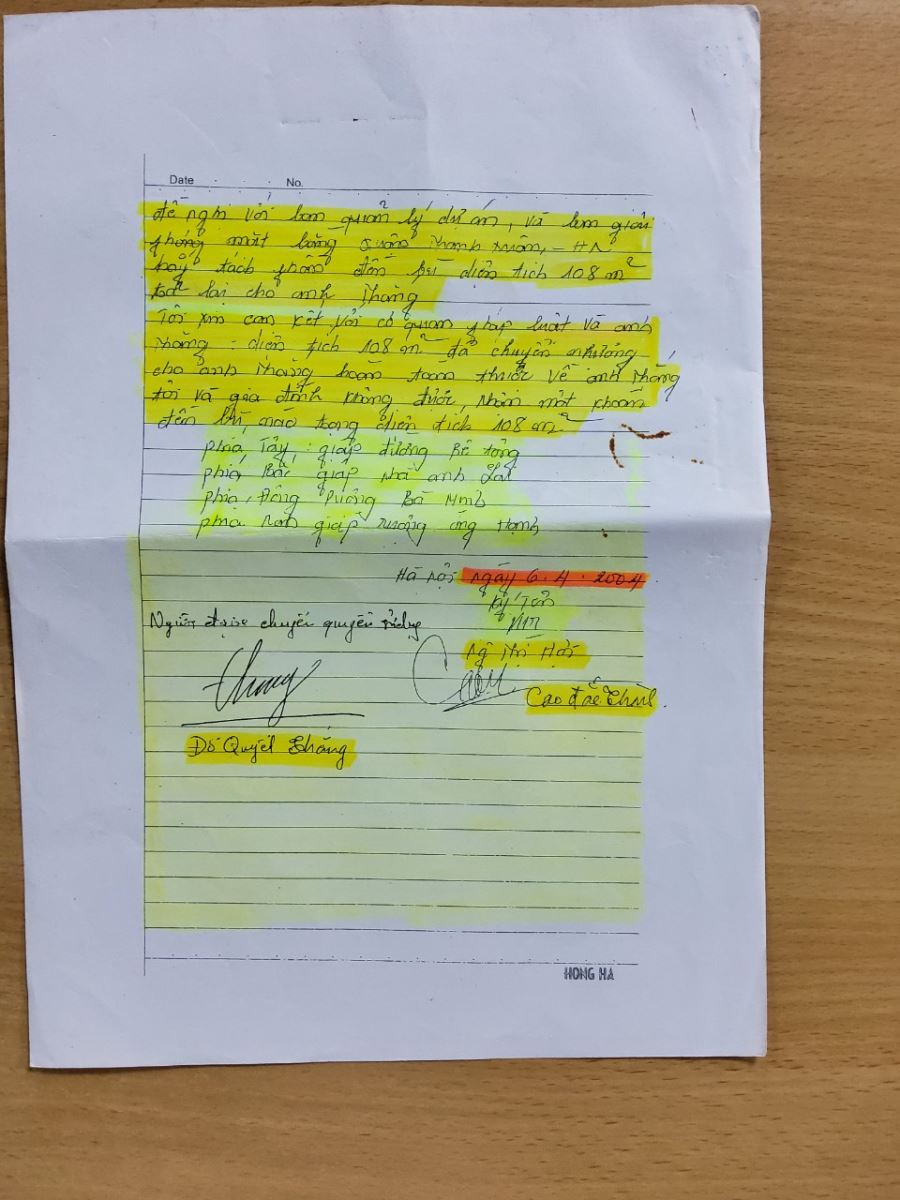 Date No.
đề nghị với ban quản lý dự án, và ban giải
phóng mặt bằng quận Thanh Xuân - HN
hãy tách phần đền bù diện tích 108 m²
trả lại cho anh Thắng
Tôi xin cam kết với cơ quan pháp luật và anh
Thắng: diện tích 108 m² đã chuyển nhượng
cho anh Thắng hoàn toàn thuộc về anh Thắng
tôi và gia đình không được, nhận một khoản
đền bù, nào trong diện tích 108 m²
phía, Tây, : giáp đường Bê tông
phía Bắc giáp nhà anh
phía, Đông Ruộng Bà Minh
phía Nam giáp ruộng ông Hạnh
Hà nội ngày 6.4.2004
Ký Tên
Người được chuyển quyền sử dụng
Cao đắc
Đỗ Quyết Thắng
HONG HA